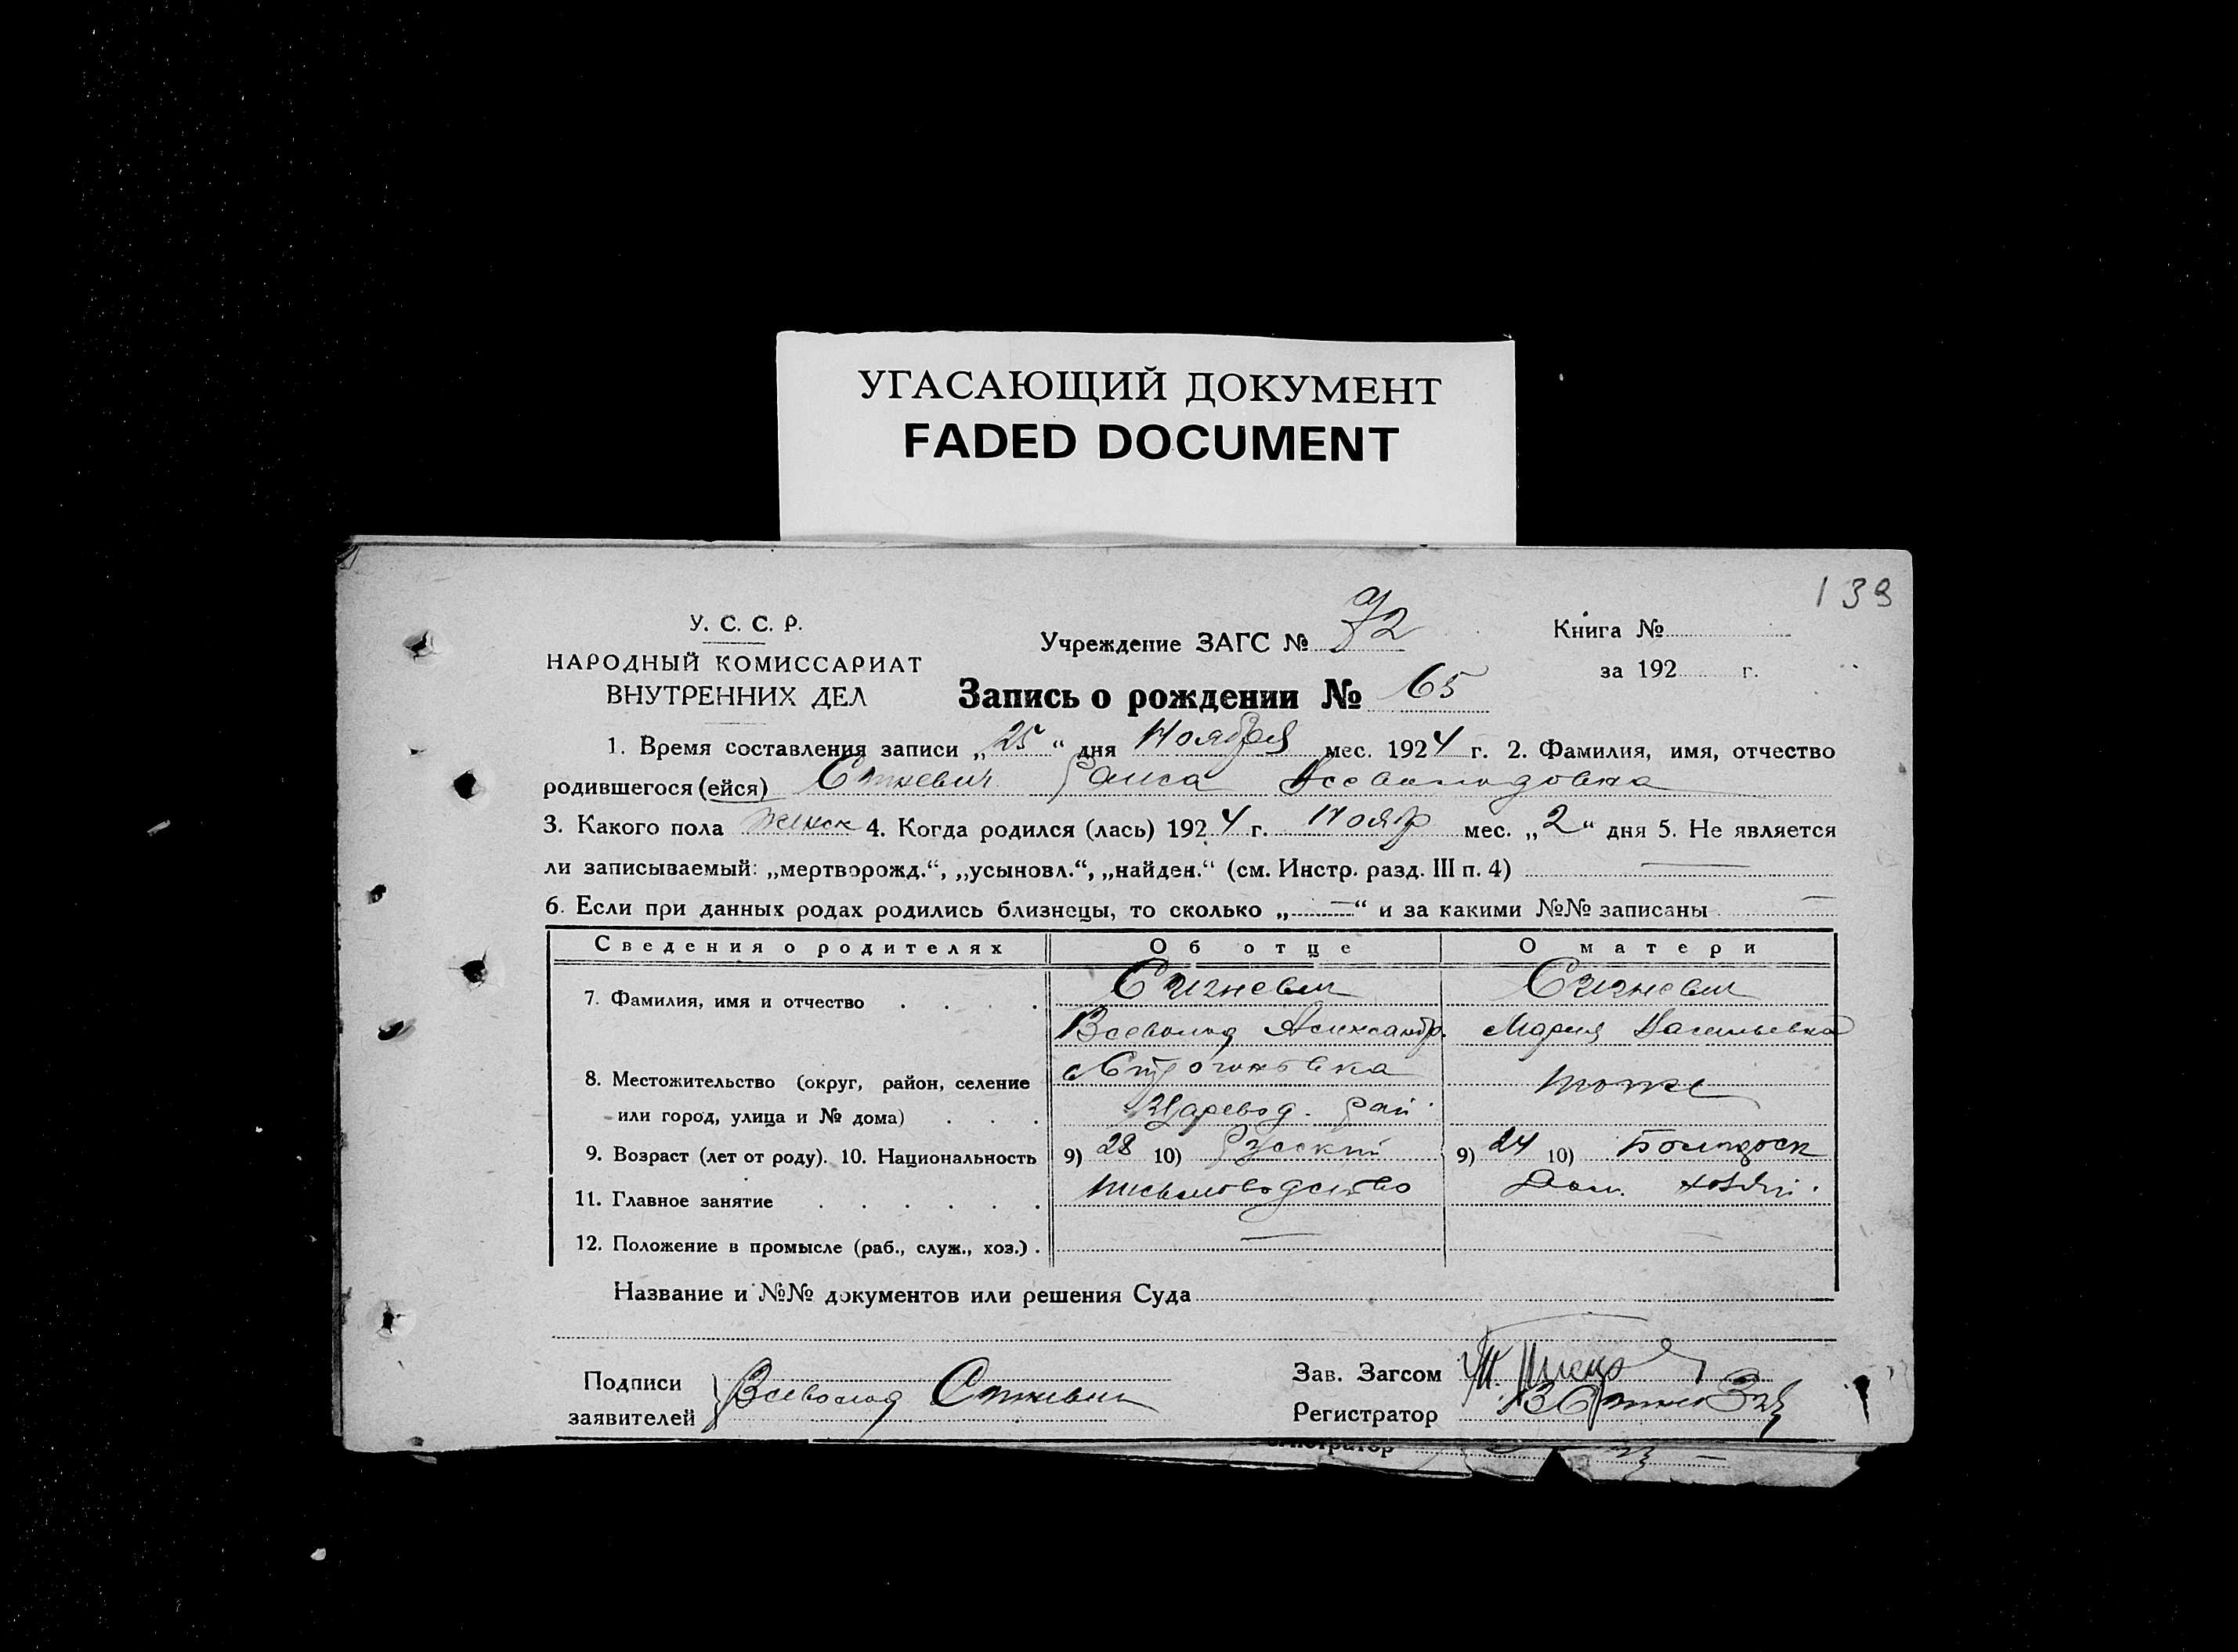 УГАСАЮЩИЙ ДОКУМЕНТ
FADED DOCUMENT
139
У. С. С. Р.
НАРОДНЫЙ КОМИССАРИАТ
ВНУТРЕННИХ ДЕЛ
Учреждение ЗАГС № 72
Книга №
за 192 г.
Запись о рождении № 65
1. Время составления записи „25“ дня Ноября мес. 1924 г. 2. Фамилия, имя, отчество
родившегося (ейся) Раиса Всеволодовна
3. Какого пола женск 4. Когда родился (лась) 1924 г. Нояб мес. „2“ дня 5. Не является
ли записываемый: „мертворожд.“, „усыновл.“, „найден.“ (см. Инстр. разд. III п. 4) —
6. Если при данных родах родились близнецы, то сколько „—“ и за какими №№ записаны —
Сведения о родителях Об отце О матери
7. Фамилия, имя и отчество
Всеволод Александр. Мария Васильевна
8. Местожительство (округ, район, селение тоже
или город, улица и № дома) Царевод. рай
9. Возраст (лет от роду). 10. Национальность 9) 28 10) Русский 9) 24 10)
11. Главное занятие письмоводство Дом. хозяй.
12. Положение в промысле (раб., служ., хоз.) —
Название и №№ документов или решения Суда
Подписи
заявителей Всеволод
Зав. Загсом
Регистратор